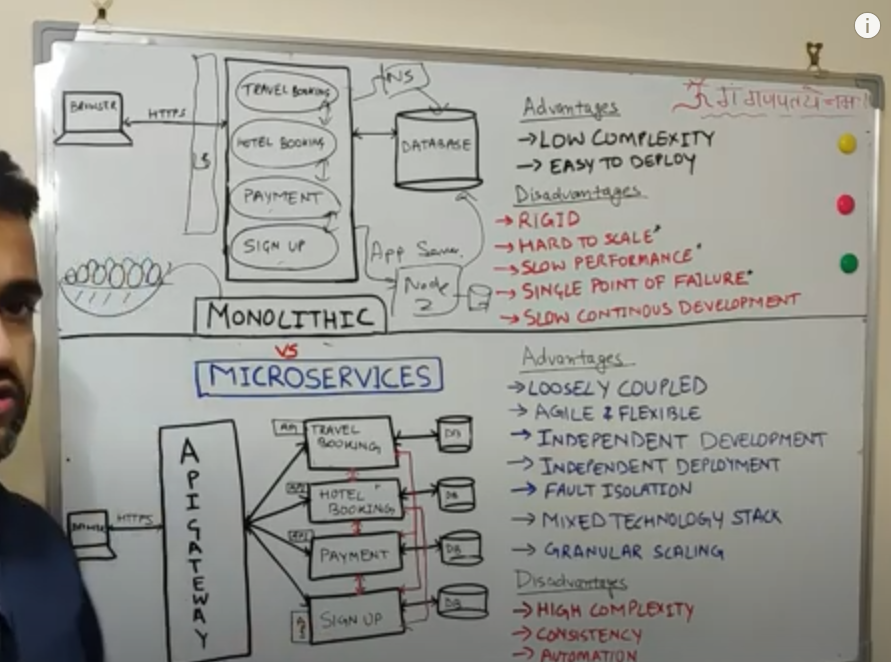 ॐ गं गणपतये नमः
BROWSER
HTTPS
LS
TRAVEL BOOKING
HOTEL BOOKING
PAYMENT
SIGN UP
NS
DATABASE
App Server
Node
2
Advantages
→ LOW COMPLEXITY
→ EASY TO DEPLOY
Disadvantages
→ RIGID
→ HARD TO SCALE*
→ SLOW PERFORMANCE*
→ SINGLE POINT OF FAILURE*
→ SLOW CONTINOUS DEVELOPMENT
MONOLITHIC
VS
MICROSERVICES
HTTPS
API GATEWAY
API
TRAVEL
BOOKING
DB
API
HOTEL
BOOKING
DB
API
PAYMENT
DB
SIGN UP
DB
Advantages
→ LOOSELY COUPLED
→ AGILE & FLEXIBLE
→ INDEPENDENT DEVELOPMENT
→ INDEPENDENT DEPLOYMENT
→ FAULT ISOLATION
→ MIXED TECHNOLOGY STACK
→ GRANULAR SCALING
Disadvantages
→ HIGH COMPLEXITY
→ CONSISTENCY
→ AUTOMATION